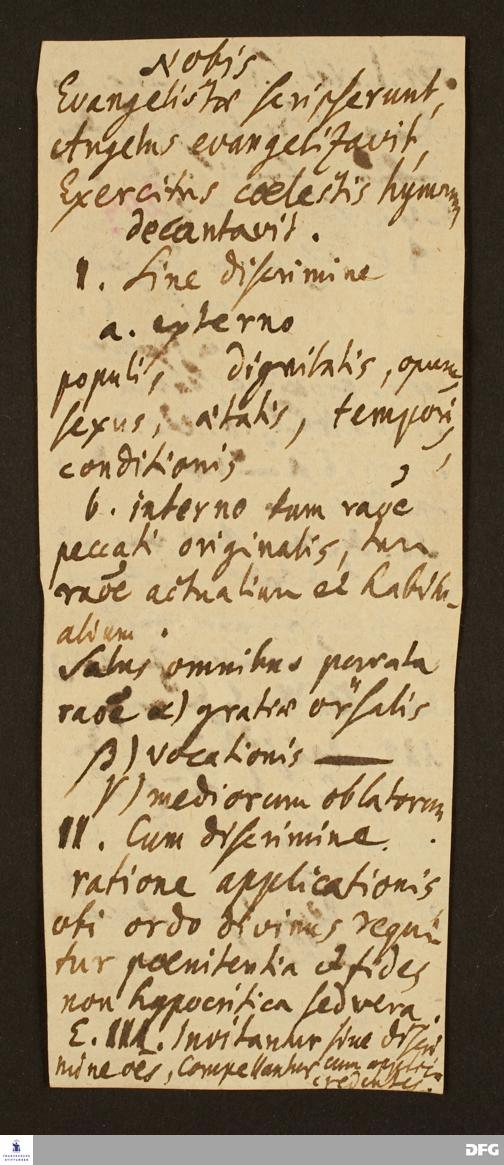 Nobis
Evangelistæ scripserunt,
Angelus evangelizavit,
Exercitus cœlestis hymnum
decantavit.
I. Sine discrimine
a. externo
populi, dignitatis, opum,
sexus, ætatis, temporis,
conditionis
b. interno tum raõe
peccati originalis, tum
raõe actualium et habitu-
alium.
Salus omnibus parata
raõe α) gratiæ vrsalis
β) vocationis —
γ) mediorum oblatorum
II. Cum discrimine.
ratione applicationis
ubi ordo divinus requiri-
tur pœnitentia et fides
non hypocritica sed vera.
E. III. Invitantur sine discri
mine oēs, Compellantur cum
credentes.
FRANCKESCHE STIFTUNGEN
DFG